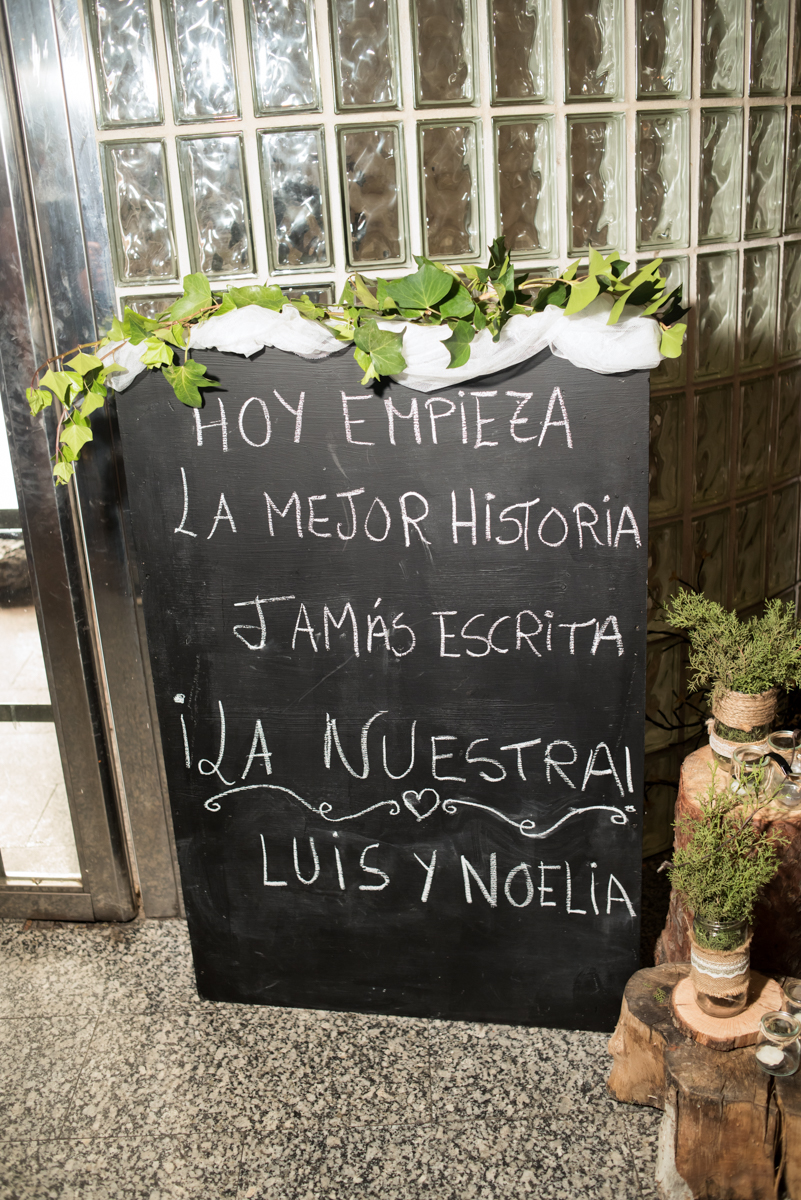 HOY EMPIEZA
LA MEJOR HISTORIA
JAMÁS ESCRITA
¡LA NUESTRA!
LUIS Y NOELIA